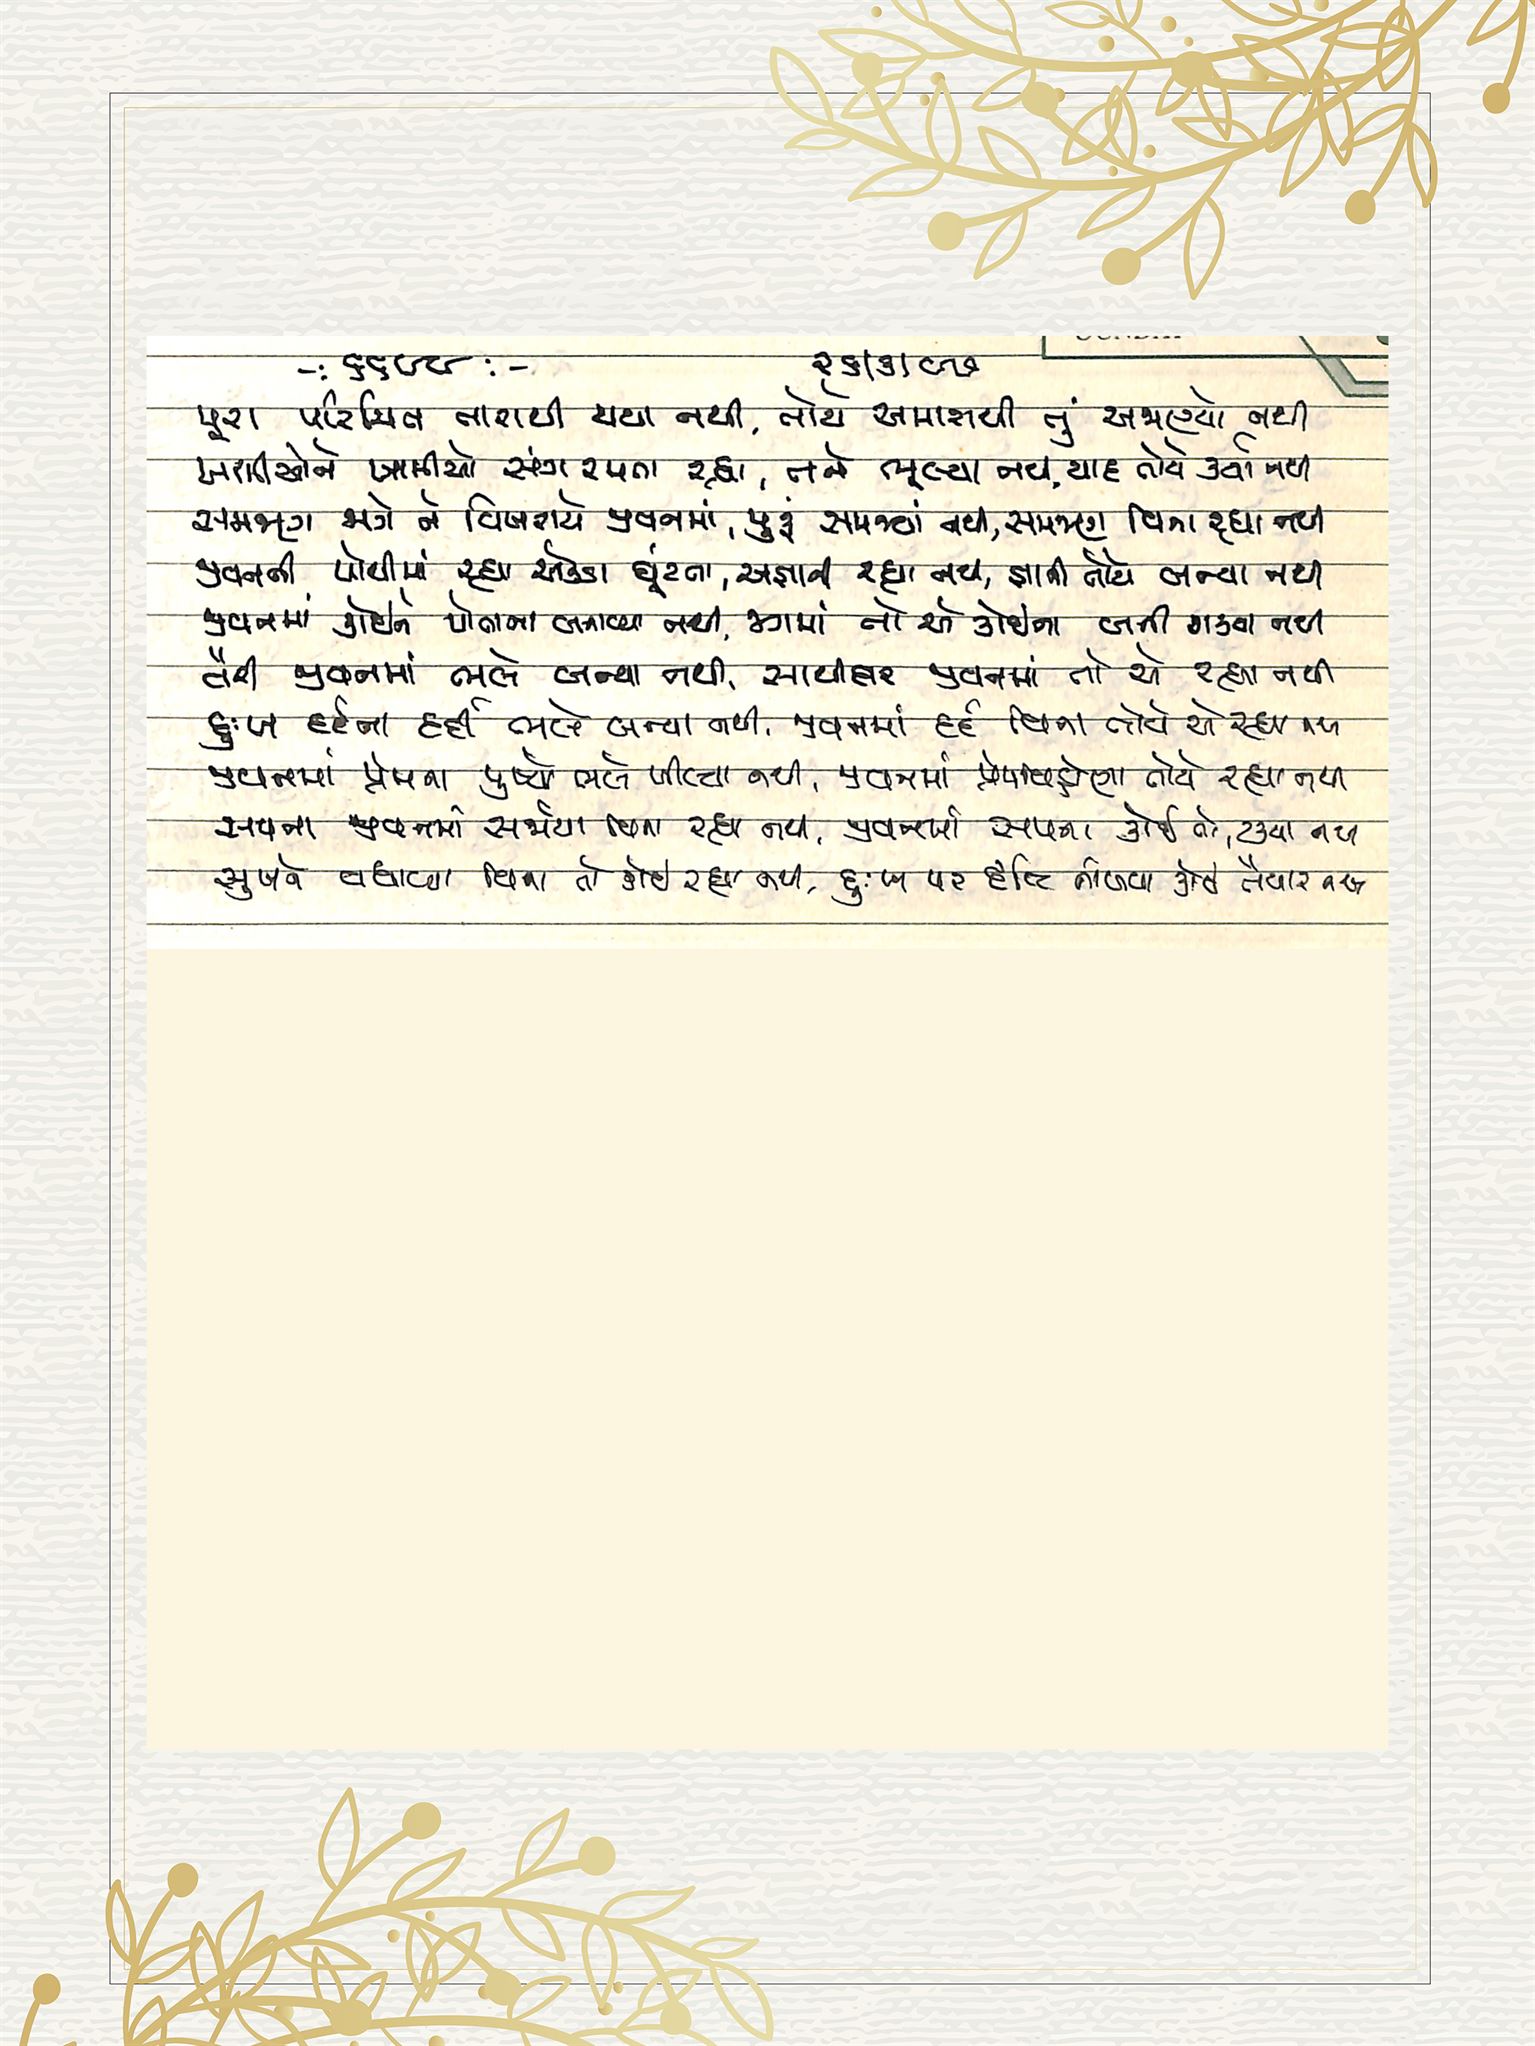 -: ૬૬૯૮ :- ૨૬/૩/૯૭
પૂરા પરિચિત તારાથી થયા નથી, તોયે અમારાથી તું અજાણ્યો નથી
ખરાબીઓને ખામીઓ સંગ રમતા રહ્યા, તને ભૂલ્યા નથી, યાદ તોયે કર્યા નથી
સમજણ જાગે ને વિખરાયે જીવનમાં, પુરું સમજ્યાં નથી, સમજણ વિના રહ્યા નથી
જીવનની પોથીમાં રહ્યા એકડા ઘૂંટતા, અજ્ઞાની રહ્યા નથી, જ્ઞાની તોયે બન્યા નથી
જીવનમાં કોઈને પોતાના બનાવ્યા નથી, જગમાં તો એ કોઈના બની શકવા નથી
વૈરી જીવનમાં ભલે બન્યા નથી, સાથીદાર જીવનમાં તો એ રહ્યા નથી
દુઃખ દર્દના દર્દી ભલે બન્યા નથી, જીવનમાં દર્દ વિના તોયે એ રહ્યા નથી
જીવનમાં પ્રેમના પુષ્પો ભલે ખીલ્યા નથી, જીવનમાં પ્રેમવિહોણા તોયે રહ્યા નથી
સપના જીવનમાં સર્જાયા વિના રહ્યા નથી, જીવનમાં સપના કોઈ તો, ટકવા નથી
સુખને વધાવ્યા વિના તો કોઈ રહ્યા નથી, દુઃખ પર દૃષ્ટિ નાંખવા કોઈ તૈયાર નથી